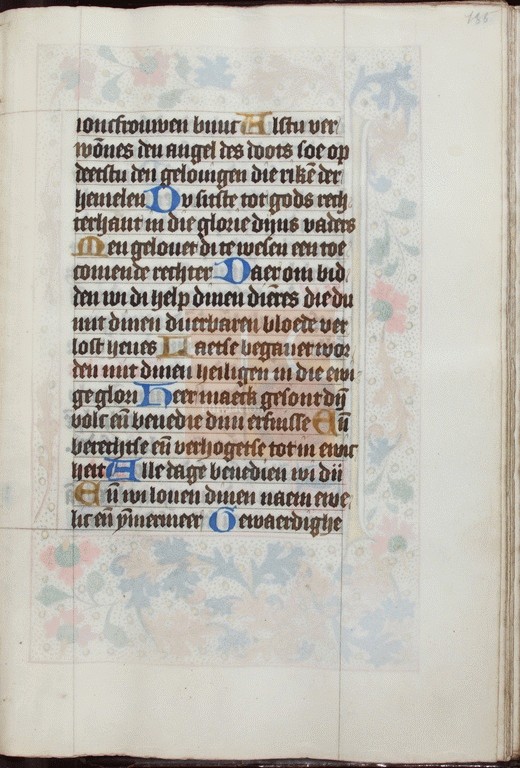 155
ioncfrouwen buuc Alstu ver
wōnes den angel des doots soe op
deetstu den gelouigen die rikē der
hemelen Du sitste tot gods rech
terhant in die glorie dijns vaders
Men gelouet di te wesen een toe
comende rechter Daer om bid
den wi di help dinen diēres die du
mit dinen duerbaren bloede ver
lost heues Laetse begauet wor
den mit dinen heiligen in die ewi
ge glori Heer maeck gesont dij̄
volc eñ benedie dijn erfnisse Eñ
berechtse eñ verhogetse tot in ewic
heit Alle dage benedien wi dij
Eñ wi louen dinen naem ewe
lic eñ ȳmermeer Gewaerdighe